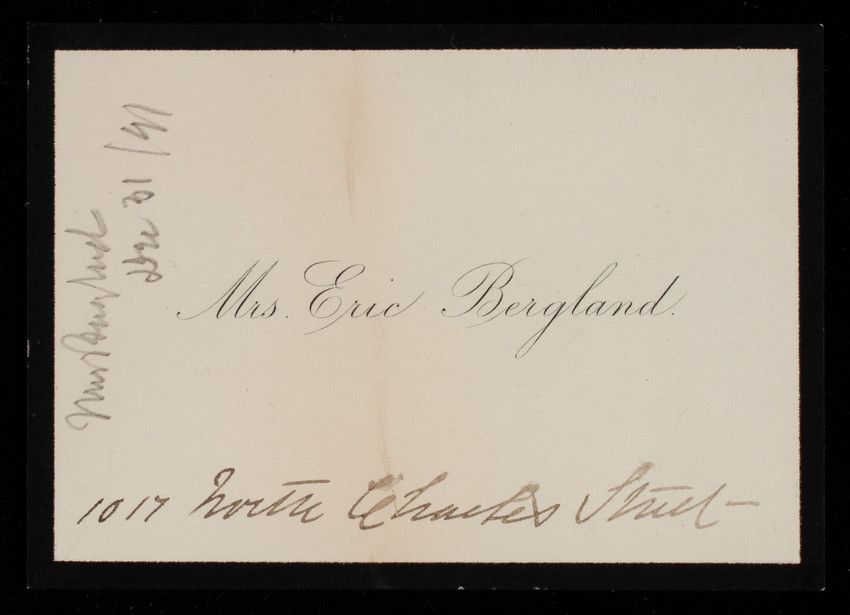 Mrs. Eric Bergland.
1017 North Charles Street
Mrs Bergland
Dec 31/91